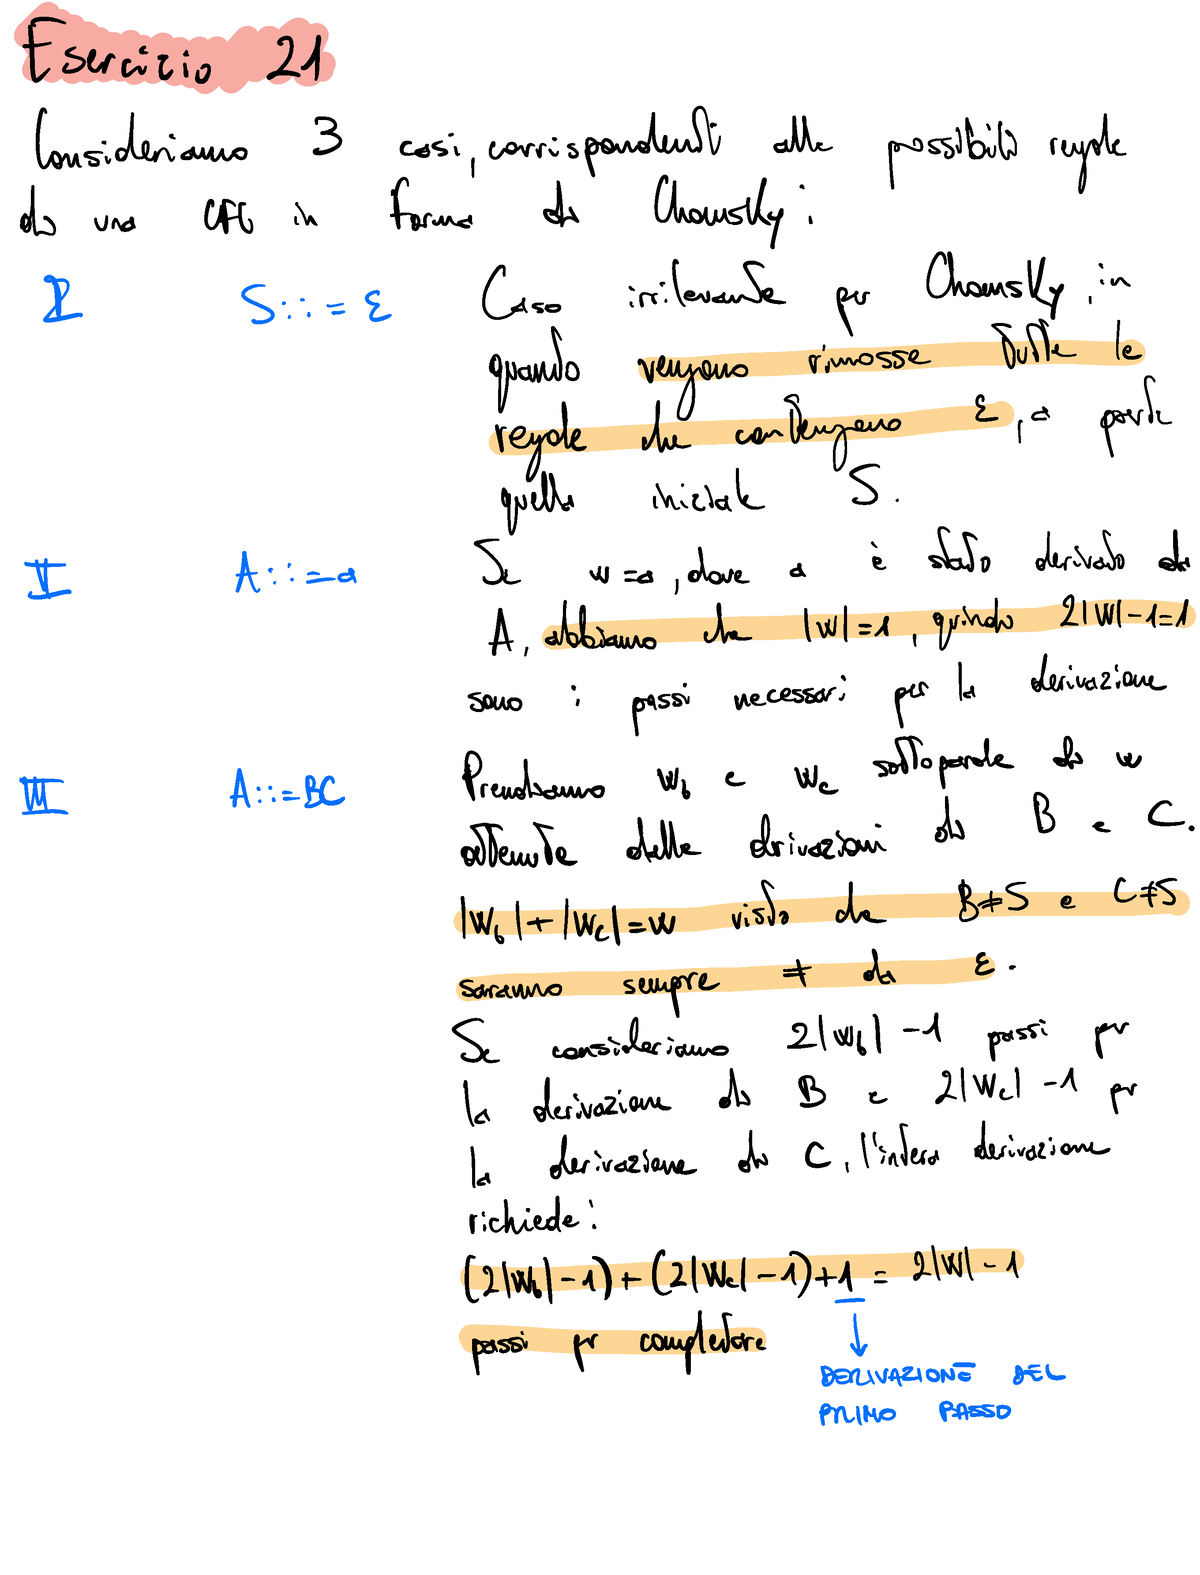 Esercizio 21
Consideriamo 3 casi, corrispondenti alle possibili regole
di una CFG in forma di Chomsky:
I S::=ε Caso irrilevante per Chomsky, in
quando vengono rimosse tutte le
regole che contengono ε, a parte
quella iniziale S.
II A::=a Se w=a, dove a è stato derivato da
A, abbiamo che |W|=1, quindi 2|W|-1=1
sono i passi necessari per la derivazione
III A::=BC Prendiamo Wb e Wc sottoparole di w
ottenute dalle derivazioni di B e C.
|Wb|+|Wc|=W visto che B≠S e C≠S
saranno sempre ≠ da ε.
Se consideriamo 2|Wb|-1 passi per
la derivazione di B e 2|Wc|-1 per
la derivazione di C, l'intera derivazione
richiede:
(2|Wb|-1)+(2|Wc|-1)+1 = 2|W|-1
passi per completare
DERIVAZIONE DEL
PRIMO PASSO